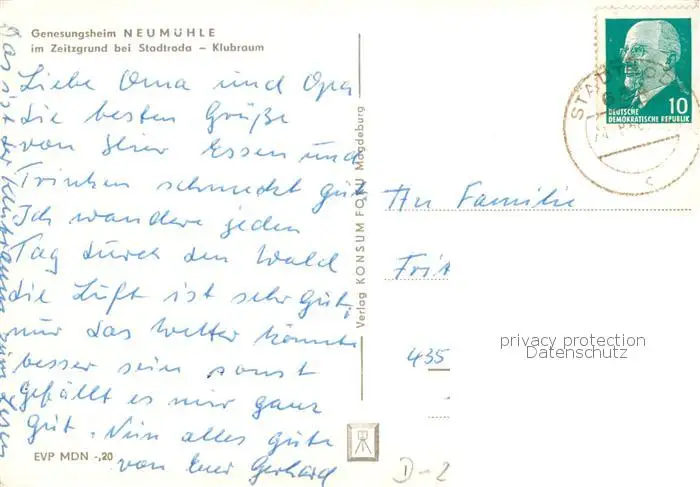 Genesungsheim NEUMÜHLE
im Zeitzgrund bei Stadtroda – Klubraum
Liebe Oma und Opa
die besten Grüße
von hier Essen und
Trinken schmeckt gut
Ich wandere jeden
Tag durch den Wald
die Luft ist sehr gut,
nur das Wetter könnte
besser sein sonst
gefällt es mir ganz
gut. Nun alles gute
von Euer Gerhard
EVP MDN -,20
Das ist der Klubraum zum Lesen
Verlag KONSUM FOTO Magdeburg
DEUTSCHE
DEMOKRATISCHE REPUBLIK
10
c
An Familie
Frit
435
privacy protection
Datenschutz
D-2